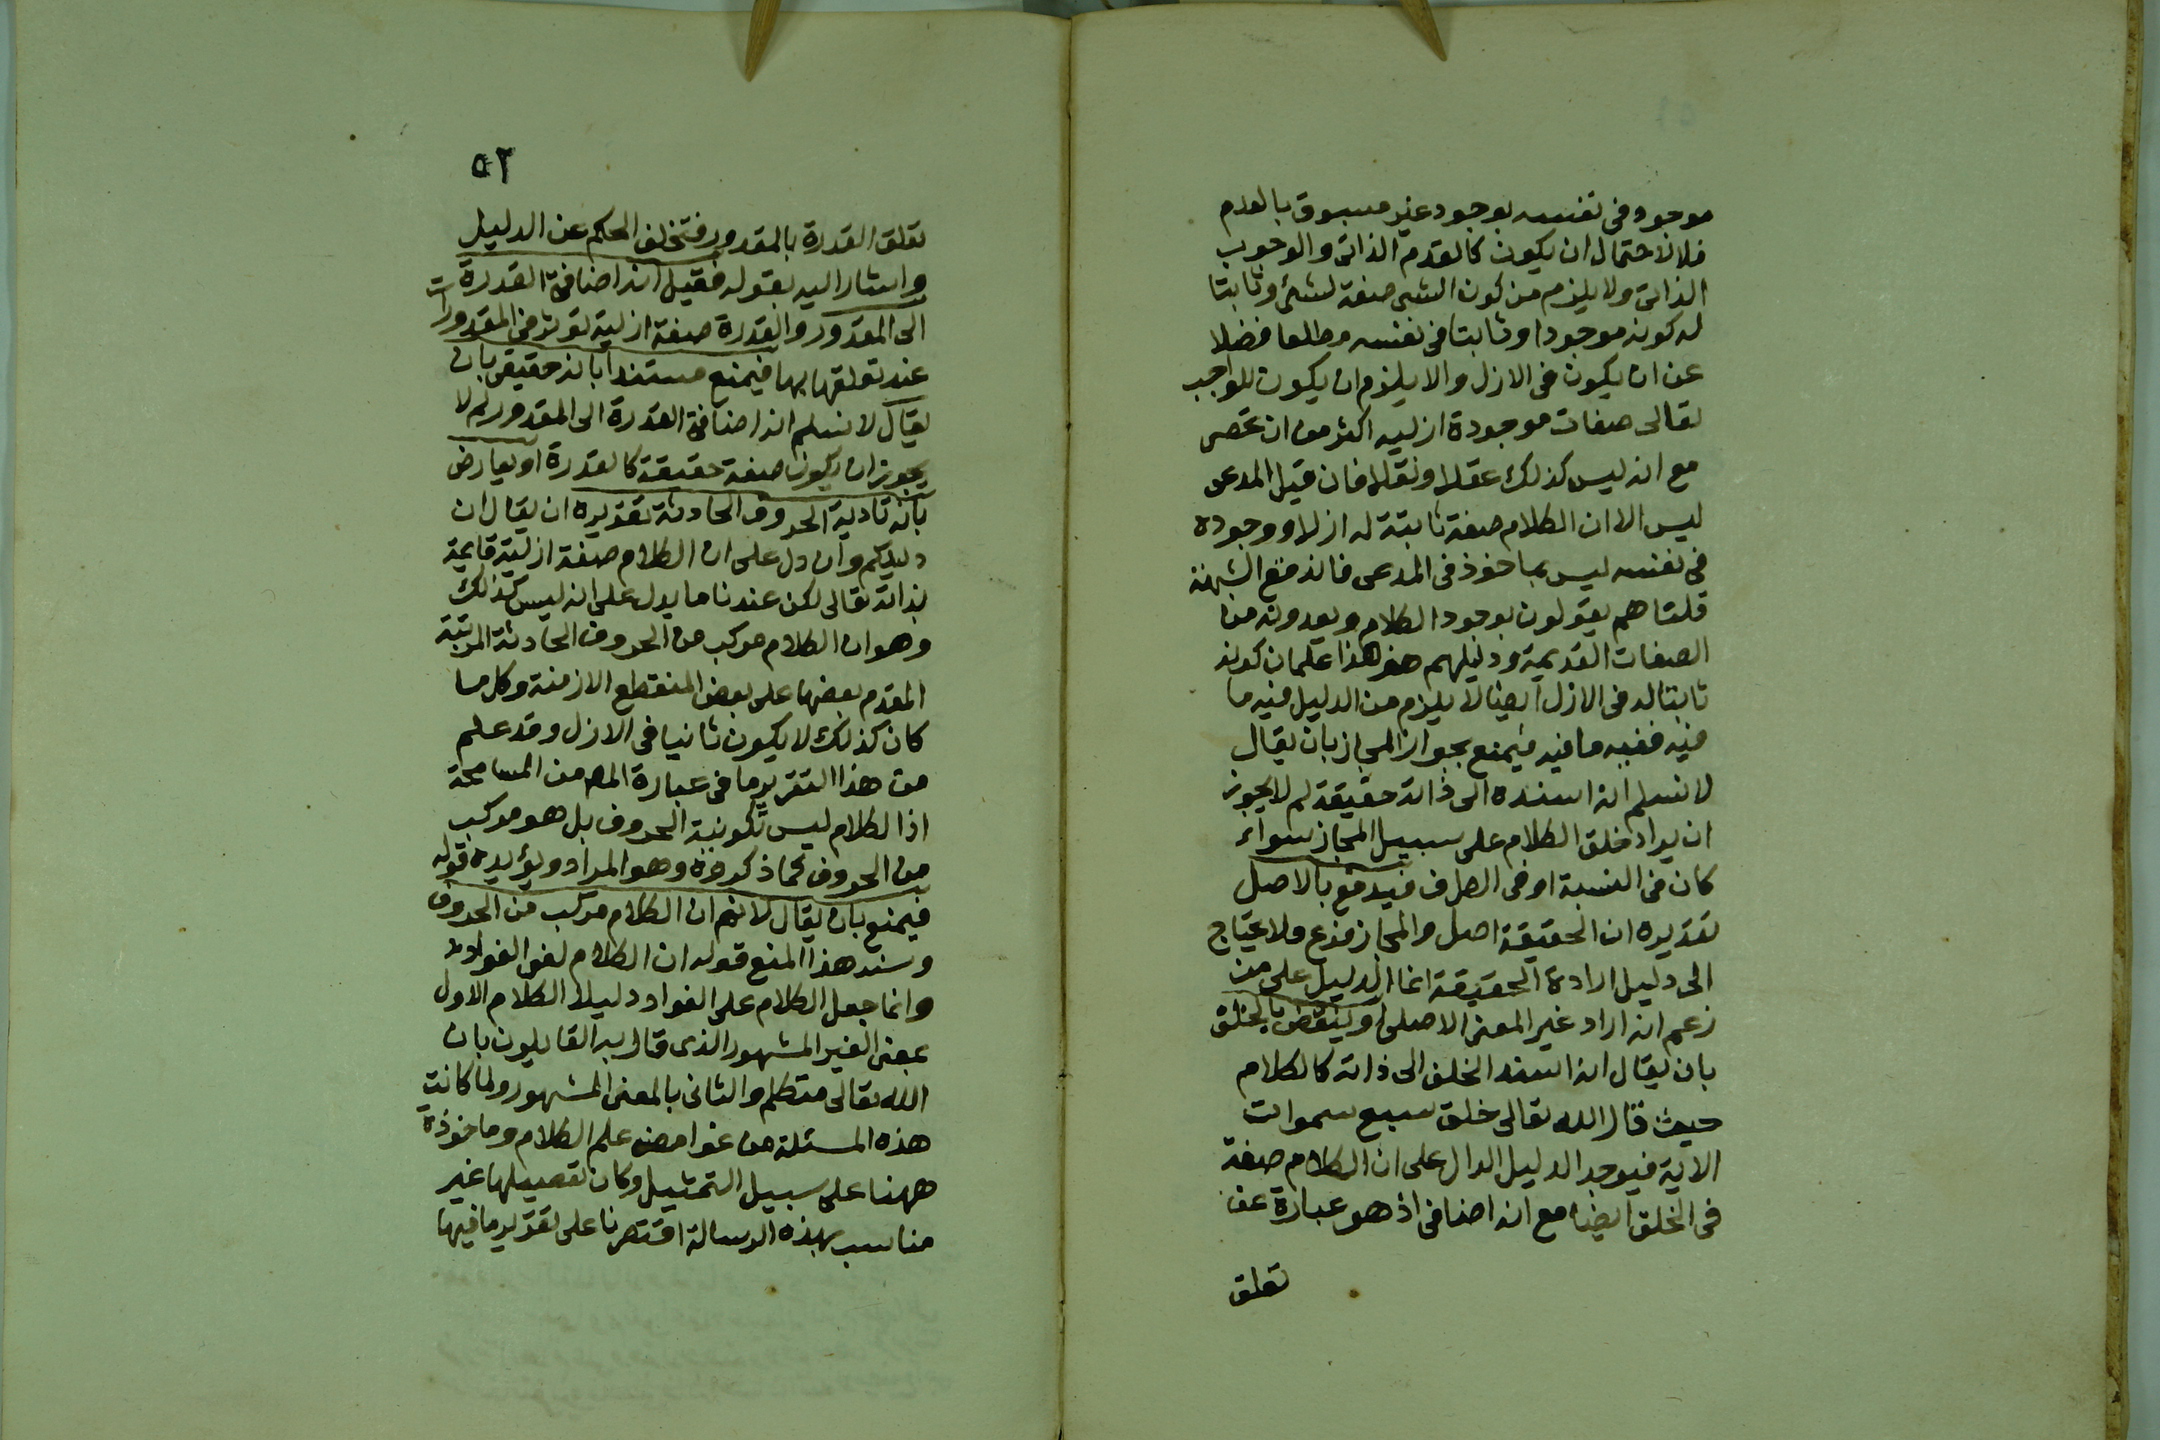 موجود فى نفسه بوجود غير مسبوق بالعدم
فلان لاحتمال ان يكون كالقدم الذاتى والوجوب
الذاتى ولا يلزم من كون الشى صفة لشئ وثابتا
له كونه موجودا وثابتا فى نفسه مطلقا فضلا
عن ان يكون فى الازل والا يلزم ان يكون للواجب
تعالى صفات موجودة ازليه اكثر من ان تحصى
مع انه ليس كذلك عقلا ونقلا فان قيل المدعى
ليس الا ان الكلام صفة ثابتة له ازلا ووجوده
فى نفسه ليس بماخوذ فى المدعى فاندفع الشبهة
قلنا هم يقولون بوجود الكلام ويعدونه من
الصفات القديمة ودليلهم هذا على ان كونه
ثابتا له فى الازل ايضا لا يلزم من الدليل فيه ما
فيه ففيه ما فيه فيمنع بجواز المجاز بان يقال
لا نسلم انه اسنده الى ذاته حقيقة لم لا يجوز
ان يراد خلق الكلام على سبيل المجاز سواء
كان فى النسبة او فى الطرف فيدفع بالاصل
تقديره ان الحقيقة اصل والمجاز فرع ولا يحتاج
الى دليل ارادة الحقيقة انما الدليل على من
زعم انه اراد غير المعنى الاصلى او ينقض بالخلق
بان يقال انه اسند الخلق الى ذاته كالكلام
حيث قال الله تعالى خلق سبع سموات
الاية فيوجد الدليل الدال على ان الكلام صفة
فى الخلق ايضا مع انه اضافى اذ هو عبارة عن
تعلق
٥٢
تعلق القدرة بالمقدور فتخلف الحكم عن الدليل
واشار اليه بقوله فقيل انه اضافة القدرة
الى المقدور والقدرة صفة ازلية تؤثر فى المقدورات
عند تعلقها بها فيمنع مستندا بانه حقيقى بان
يقال لا نسلم انه اضافة القدرة الى المقدور لم لا
يجوز ان يكون صفة حقيقة كالقدرة او يعارض
بانه تادية الحروف الحادثة تقديره ان يقال ان
دليلكم وان دل على ان الكلام صفة ازلية قايمة
بذاته تعالى لكن عندنا ما يدل على انه ليس كذلك
وهو ان الكلام مركب من الحروف الحادثة المرتبة
المقدم بعضها على بعض المنقطع الازمنة وكل ما
كان كذلك لا يكون ثانيا فى الازل وقد علم
من هذا التقرير ما فى عبارة المص من المسامحة
اذ الكلام ليس تكونية الحروف بل هو مركب
من الحروف كما ذكره وهو المراد ويؤيده قوله
فيمنع بان يقال لا نم ان الكلام مركب من الحروف
وسند هذا المنع قوله ان الكلام لفى الفواد
وانما جعل الكلام على الفواد دليلا الكلام الاول
بمعنى الغير المشهور الذى قال به القايلون بان
الله تعالى متكلم والثانى بالمعنى المشهور ولما كانت
هذه المسئلة من غوامض علم الكلام وماخوذة
ههنا على سبيل التمثيل وكان تفصيلها غير
مناسب بهذه الرسالة اقتصرنا على تقدير ما فيها